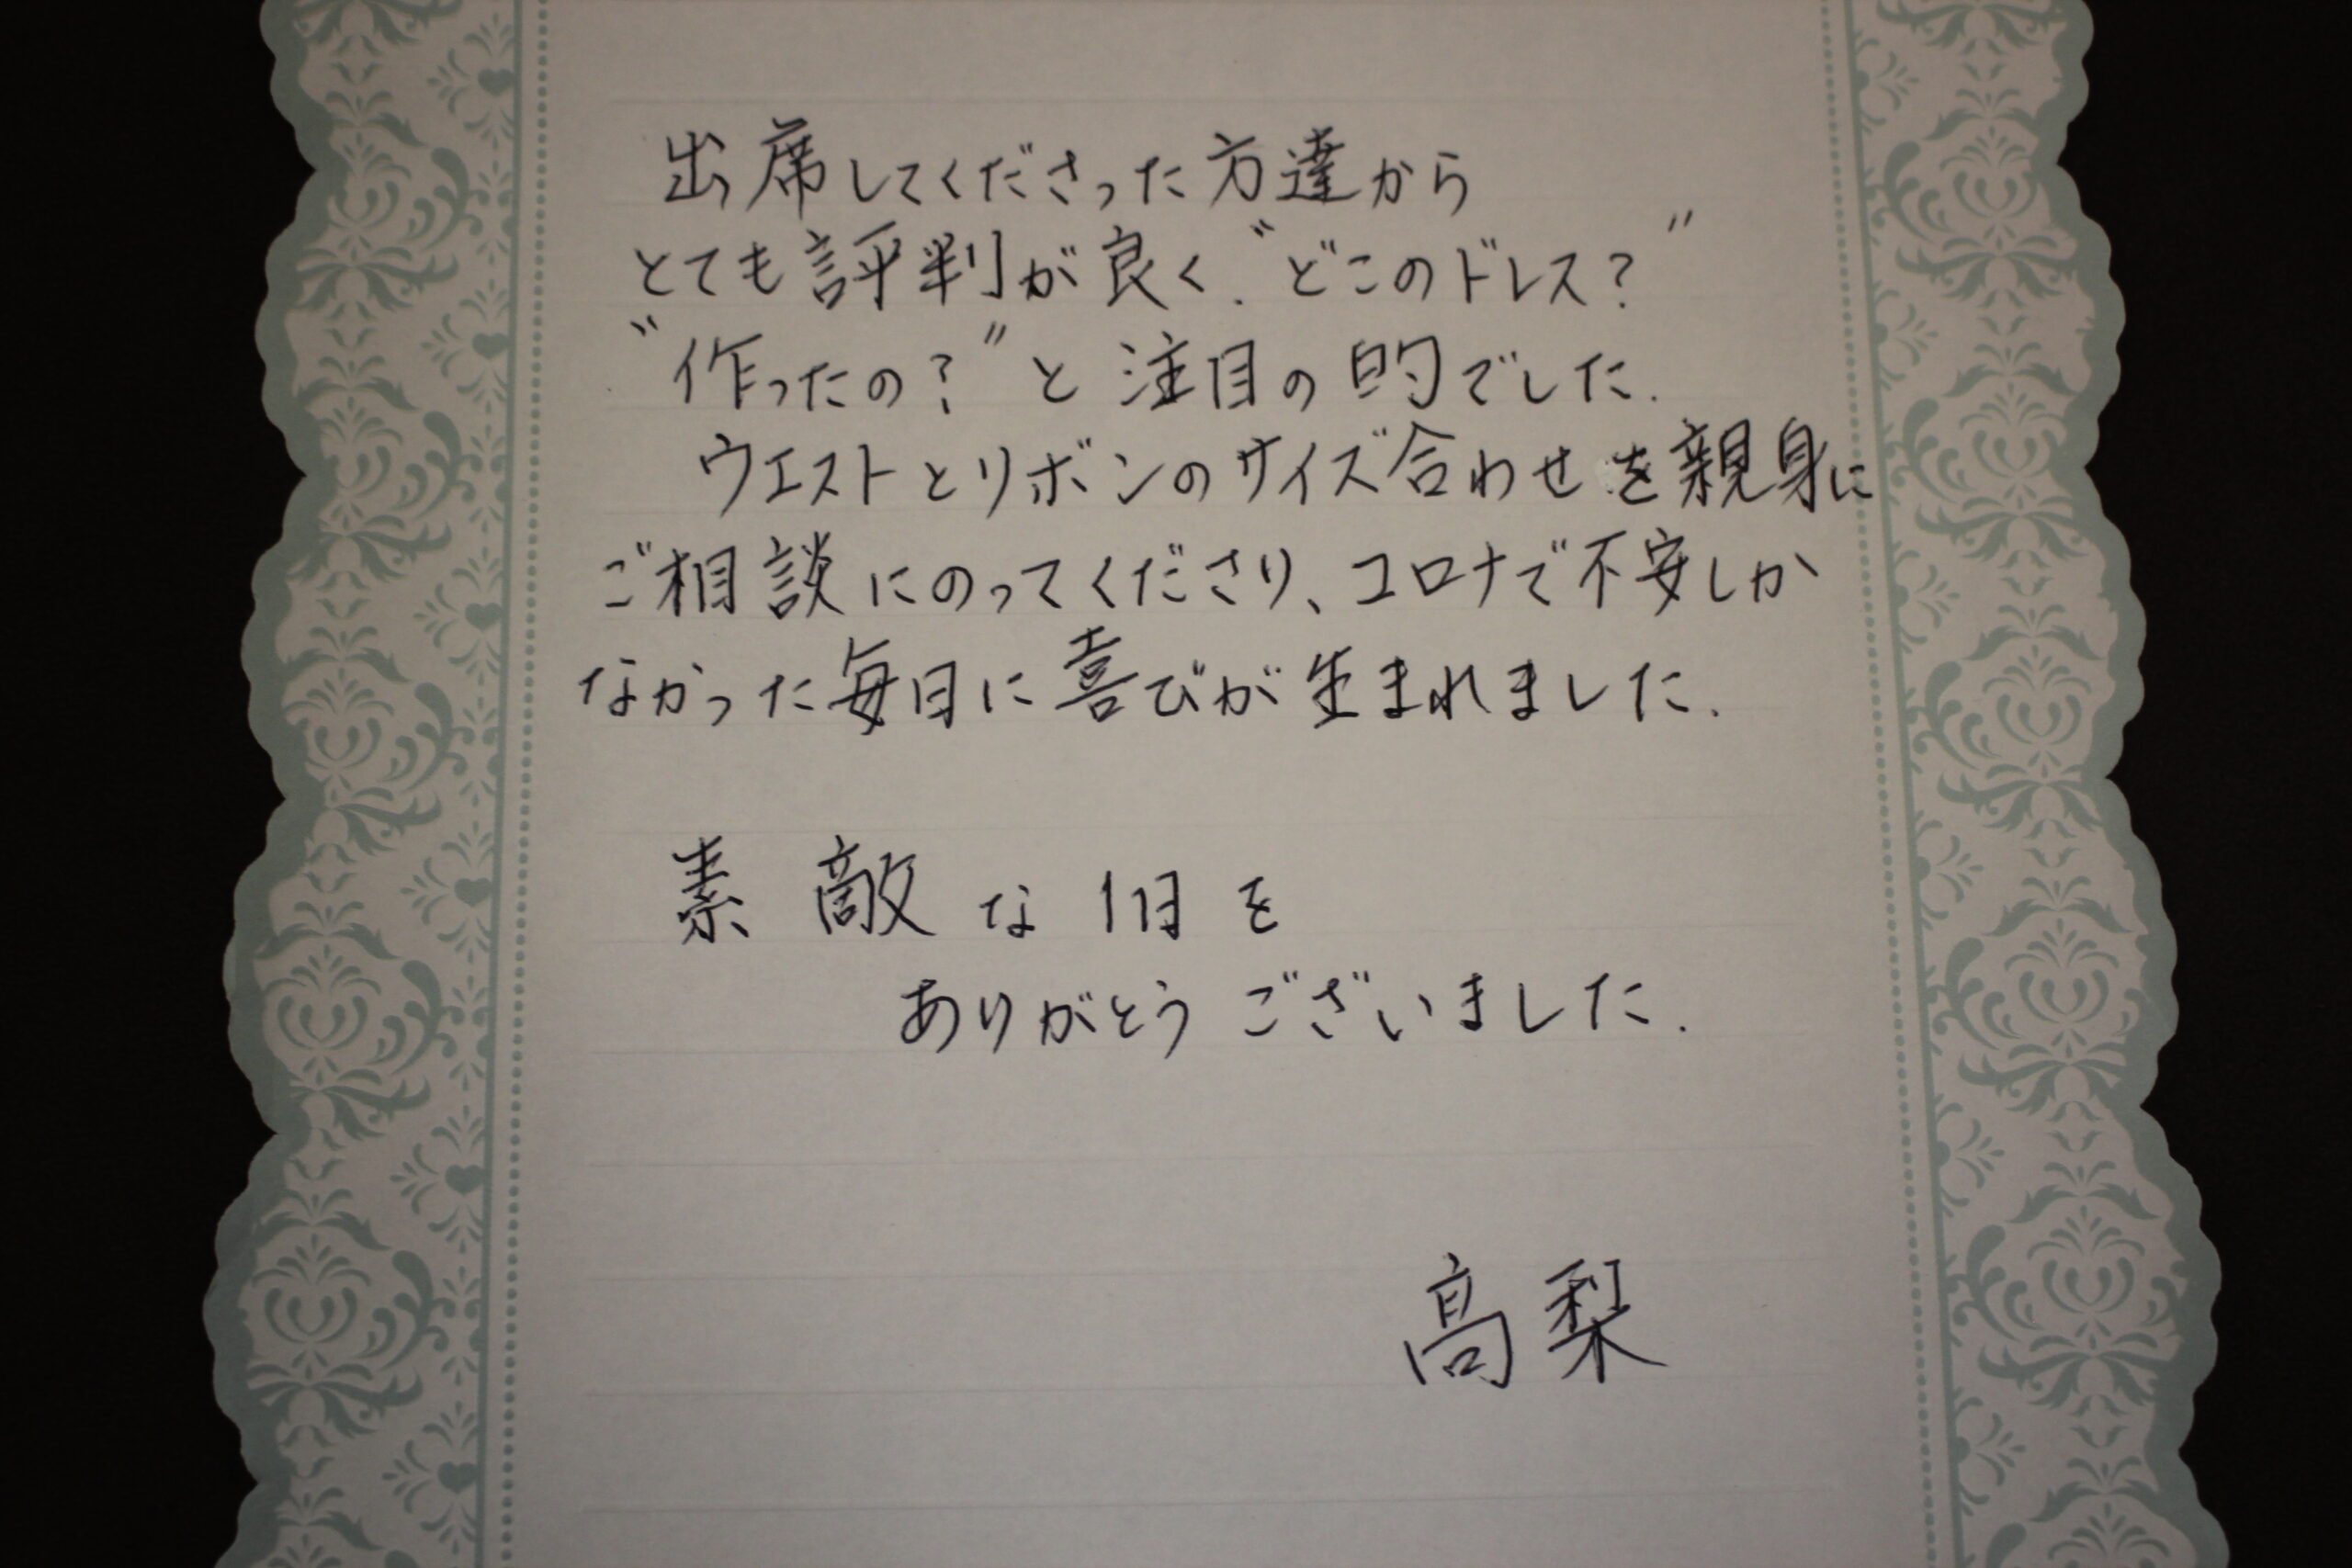 出席してくださった方達から
とても評判が良く.“どこのドレス？”
“作ったの？”と注目の的でした.
ウエストとリボンのサイズ合わせを親身に
ご相談にのってくださり、コロナで不安しか
なかった毎日に喜びが生まれました.
素敵な1日を
ありがとうございました.
高梨